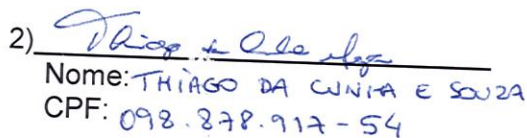 2) Thiago da
Nome: THIAGO DA CUNHA E SOUZA
CPF: 098.878.917-54